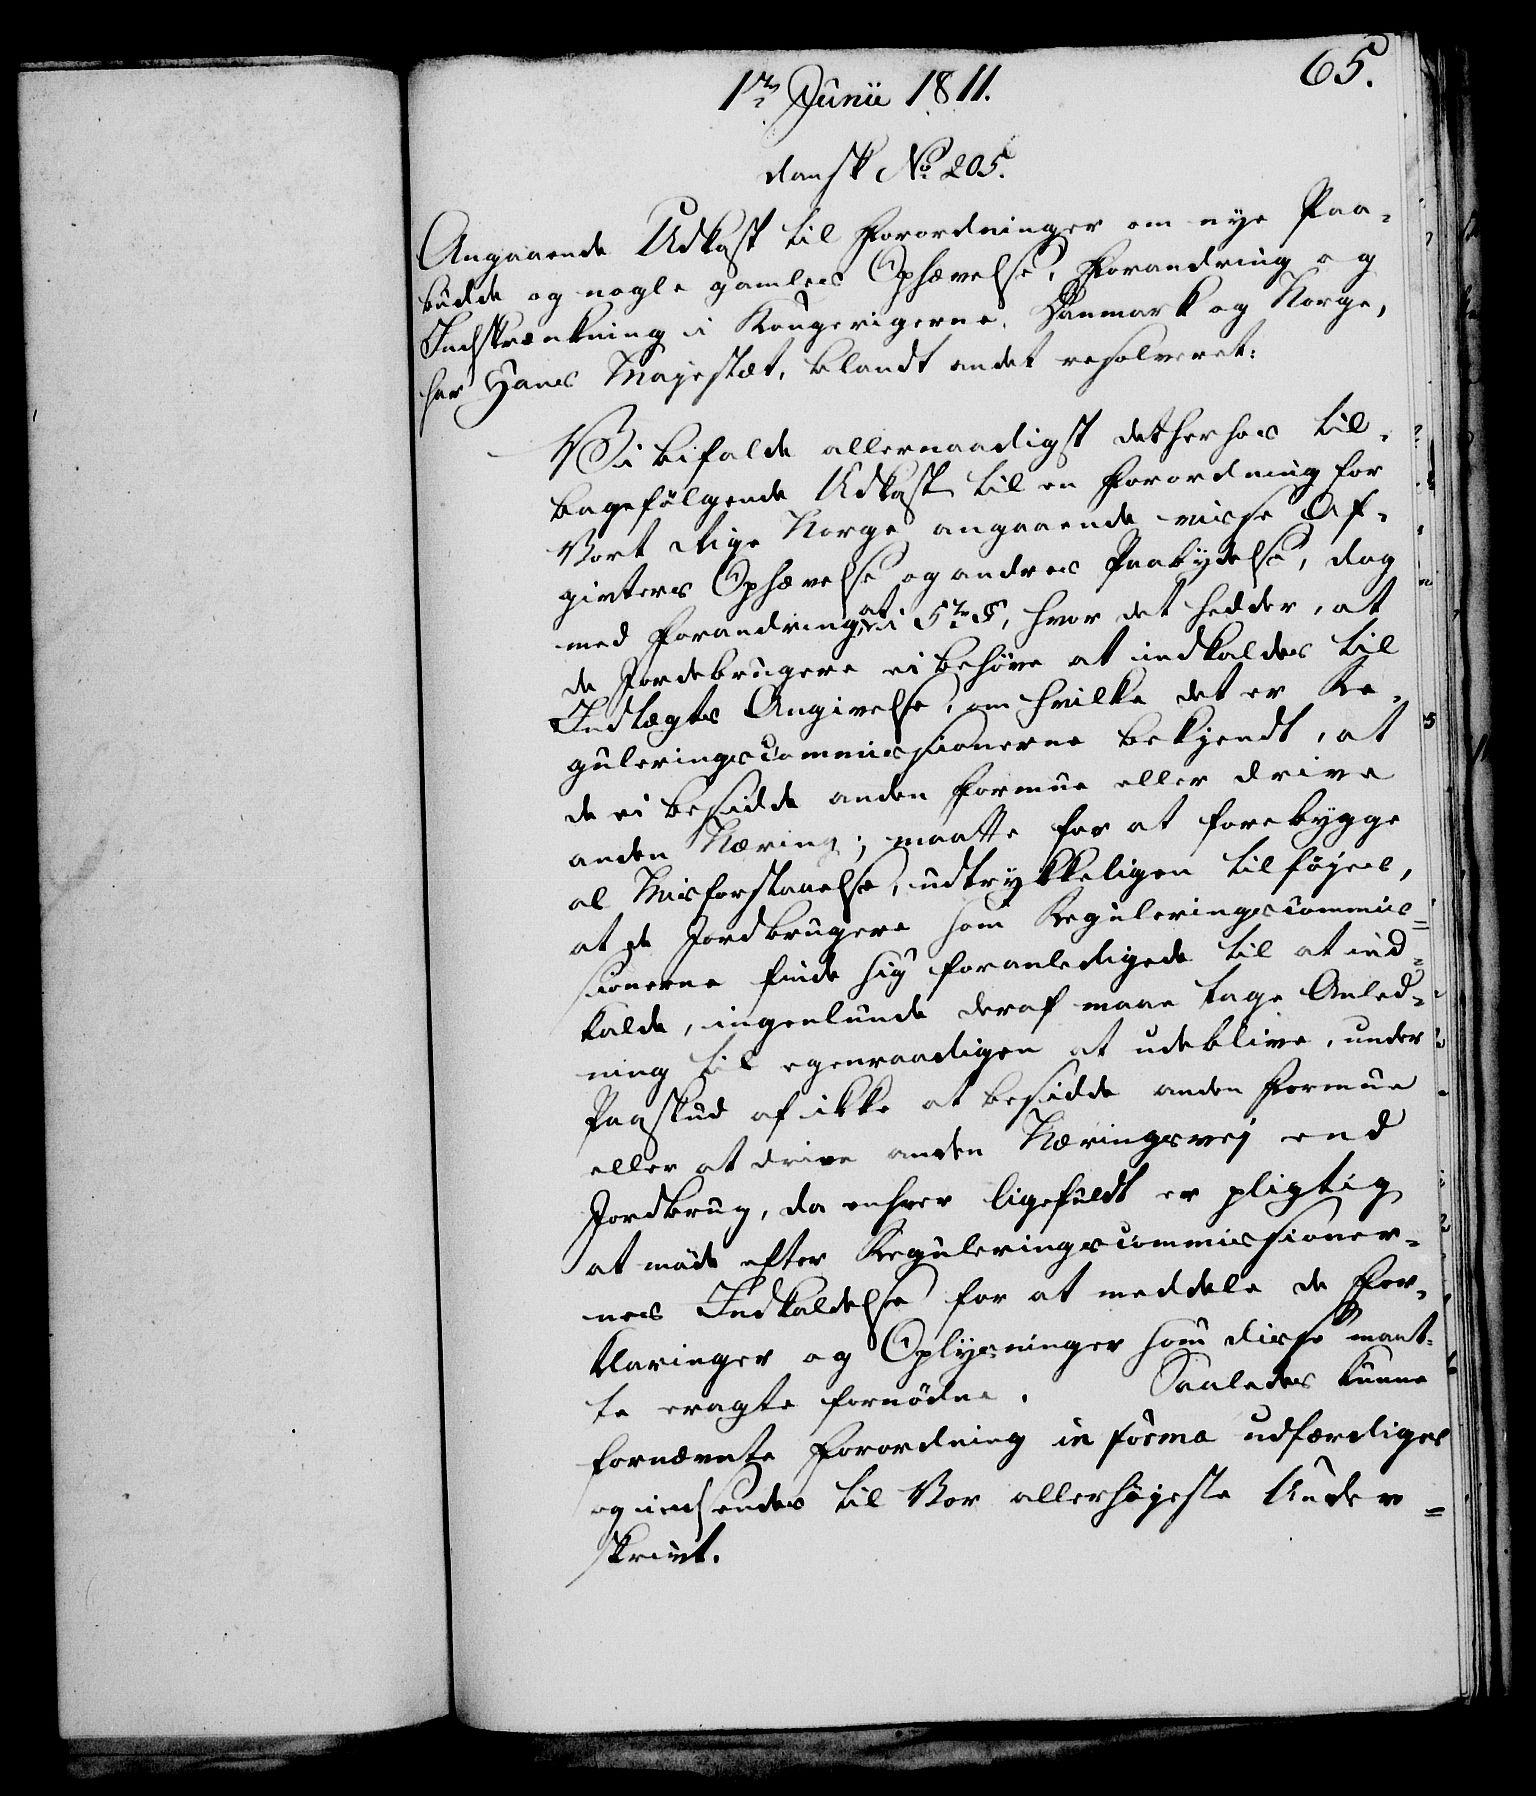 65.
1ste Junii 1811.
dansk No. 205.
Angaaende Udkast til Forordninger om nye Paa-
budde og nogle gamles Ophævelse, Forandring og
Indskrænkning i Kongerigerne Danmark og Norge,
har Hans Majestæt, blandt andet resolveret:
Vi bifalde allernaadigst det herhos til-
bagefølgende Udkast til en Forordning for
Vort Rige Norge angaaende visse Af-
givters Ophævelse og andres Paabydelse, dog
med Forandring, at i 5te §, hvor det hedder, at
de Jordebrugere ei behöve at indkaldes til
Indtægts Angivelse, om hvilke det er Re-
guleringscommissionerne bekjendt, at
de ei besidde anden Formue eller drive
anden Næring; maatte for at forebygge
al Misforstaaelse, udtrykkeligen tilföjes,
at de Jordbrugere som Reguleringscommis-
sionerne finde sig foranledigede til at ind-
kalde, ingenlunde deraf maae tage Anled-
ning til egenraadigen at udeblive, under
Paaskud af ikke at besidde anden Formue
eller at drive anden Næringsvej end
Jordbrug, da enhver ligefuldt er pligtig
at möde efter Reguleringscommissioner-
nes Indkaldelse for at meddele de For-
klaringer og Oplysninger som disse maat-
te eragte fornödne. Saaledes kunne
fornævnte Forordning in forma udfærdiges
og indsendes til Vor allerhöjeste Under-
skrivt.